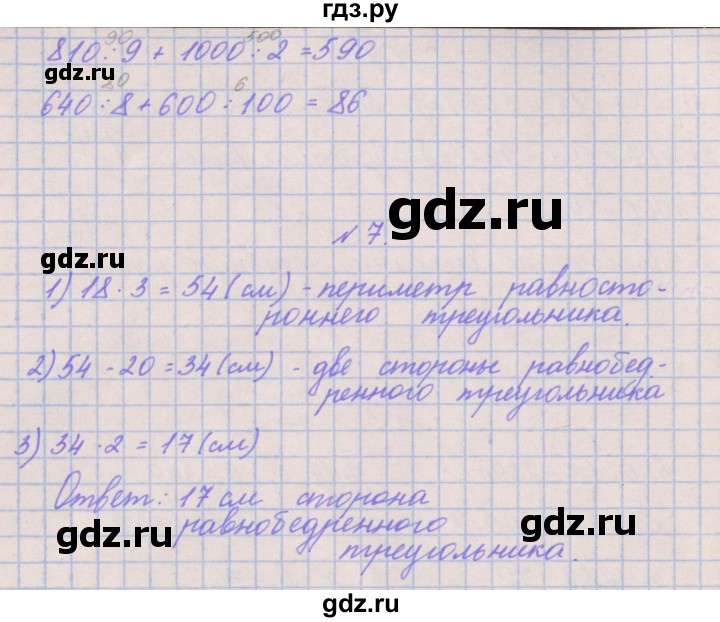 гдз.ру
90 500
810 : 9 + 1000 : 2 = 590
gdz.ru
80 6
640 : 8 + 600 : 100 = 86
gdz.ru
№ 7.
gdz.ru
1) 18 · 3 = 54 (см) - периметр равносто-
роннего треугольника.
2) 54 - 20 = 34 (см) - две стороны равнобед-
ренного треугольника
3) 34 · 2 = 17 (см)
Ответ: 17 см сторона
равнобедренного
треугольника.
gdz.ru
gdz.ru
gdz.ru